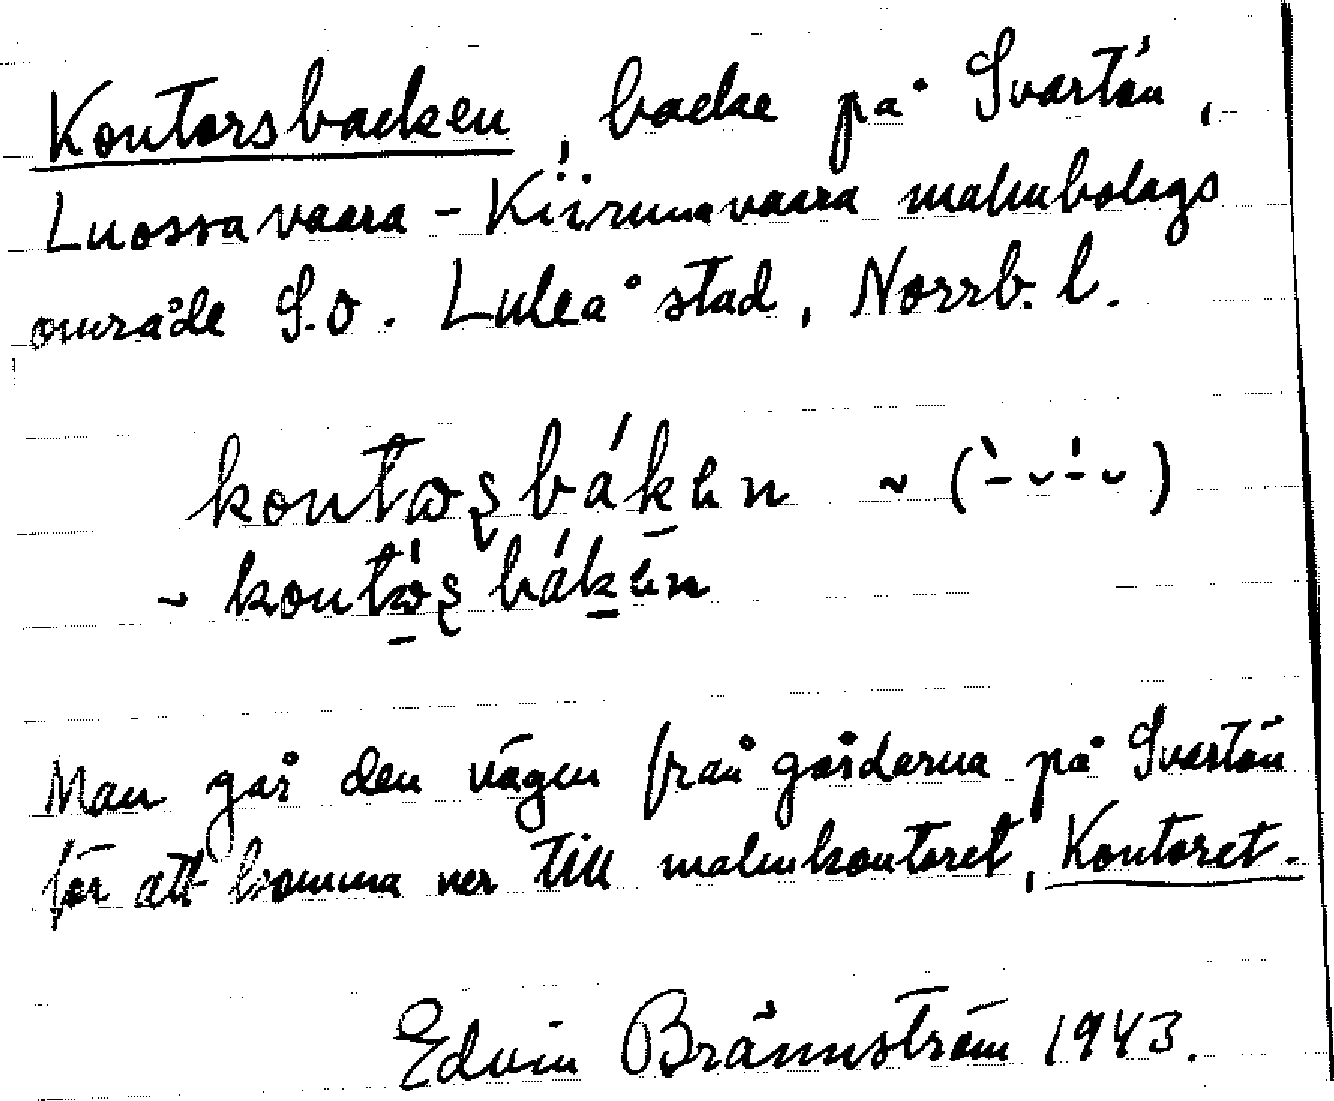 Kontorsbacken, backe på Svartön,
Luossavaara-Kiirunavaara malmbolags
område S.O. Luleå stad, Norrb. l.
kontωʂbák̠ɛn ~ (`-ᴗ´-ᴗ)
~ kontώ̠ʂbák̠ɛn
Man går den vägen från gårdarna på Svartön
för att komma ner till malmkontoret, Kontoret.
Edvin Brännström 1943.